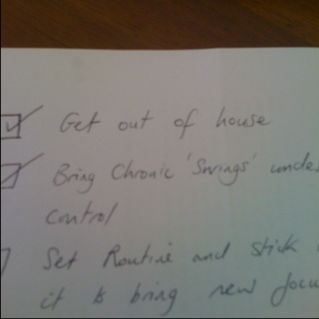 Get out of house
Bring Chronic 'Swings' unde
control
Set Routine and stick
it to bring new focu